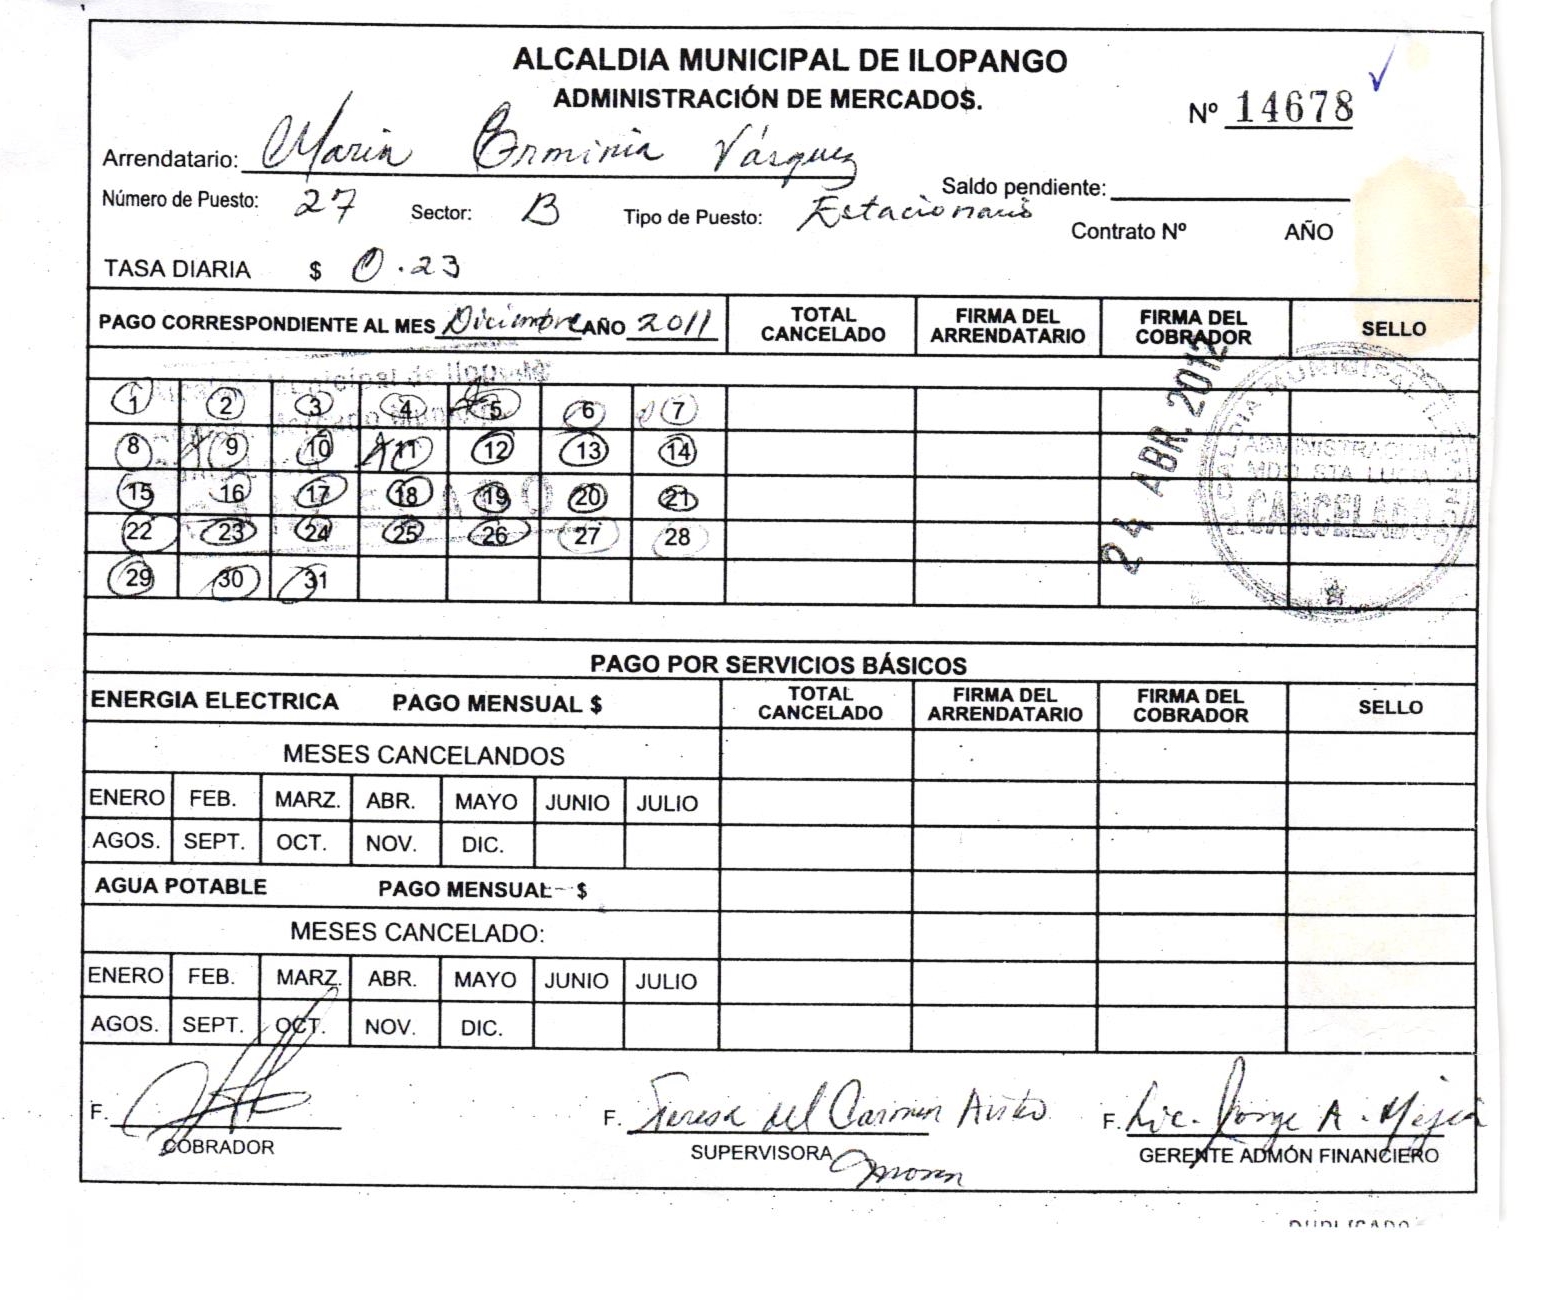 ALCALDIA MUNICIPAL DE ILOPANGO
ADMINISTRACIÓN DE MERCADO$.
Nº 14678
Arrendatario: Maria Erminia Vásquez
Saldo pendiente:
Número de Puesto: 27 Sector: B Tipo de Puesto: Estacionario
Contrato Nº AÑO
TASA DIARIA $ 0.23
PAGO CORRESPONDIENTE AL MES Diciembre AÑO 2011
TOTAL CANCELADO
FIRMA DEL ARRENDATARIO
FIRMA DEL COBRADOR
SELLO
1 2 3 4 5 6 7
8 9 10 11 12 13 14
15 16 17 18 19 20 21
22 23 24 25 26 27 28
29 30 31
Municipal de Ilopango
24 ABR. 2012
ADMINISTRACION
MDO. STA. LUCIA
CANCELADO
PAGO POR SERVICIOS BÁSICOS
ENERGIA ELECTRICA PAGO MENSUAL $
TOTAL CANCELADO
FIRMA DEL ARRENDATARIO
FIRMA DEL COBRADOR
SELLO
MESES CANCELANDOS
ENERO FEB. MARZ. ABR. MAYO JUNIO JULIO
AGOS. SEPT. OCT. NOV. DIC.
AGUA POTABLE PAGO MENSUAL $
MESES CANCELADO:
ENERO FEB. MARZ. ABR. MAYO JUNIO JULIO
AGOS. SEPT. OCT. NOV. DIC.
F.
COBRADOR
F. Teresa del Carmen
SUPERVISORA
F. Lic. Jorge A. Mejía
GERENTE ADMÓN FINANCIERO
DUPLICADO